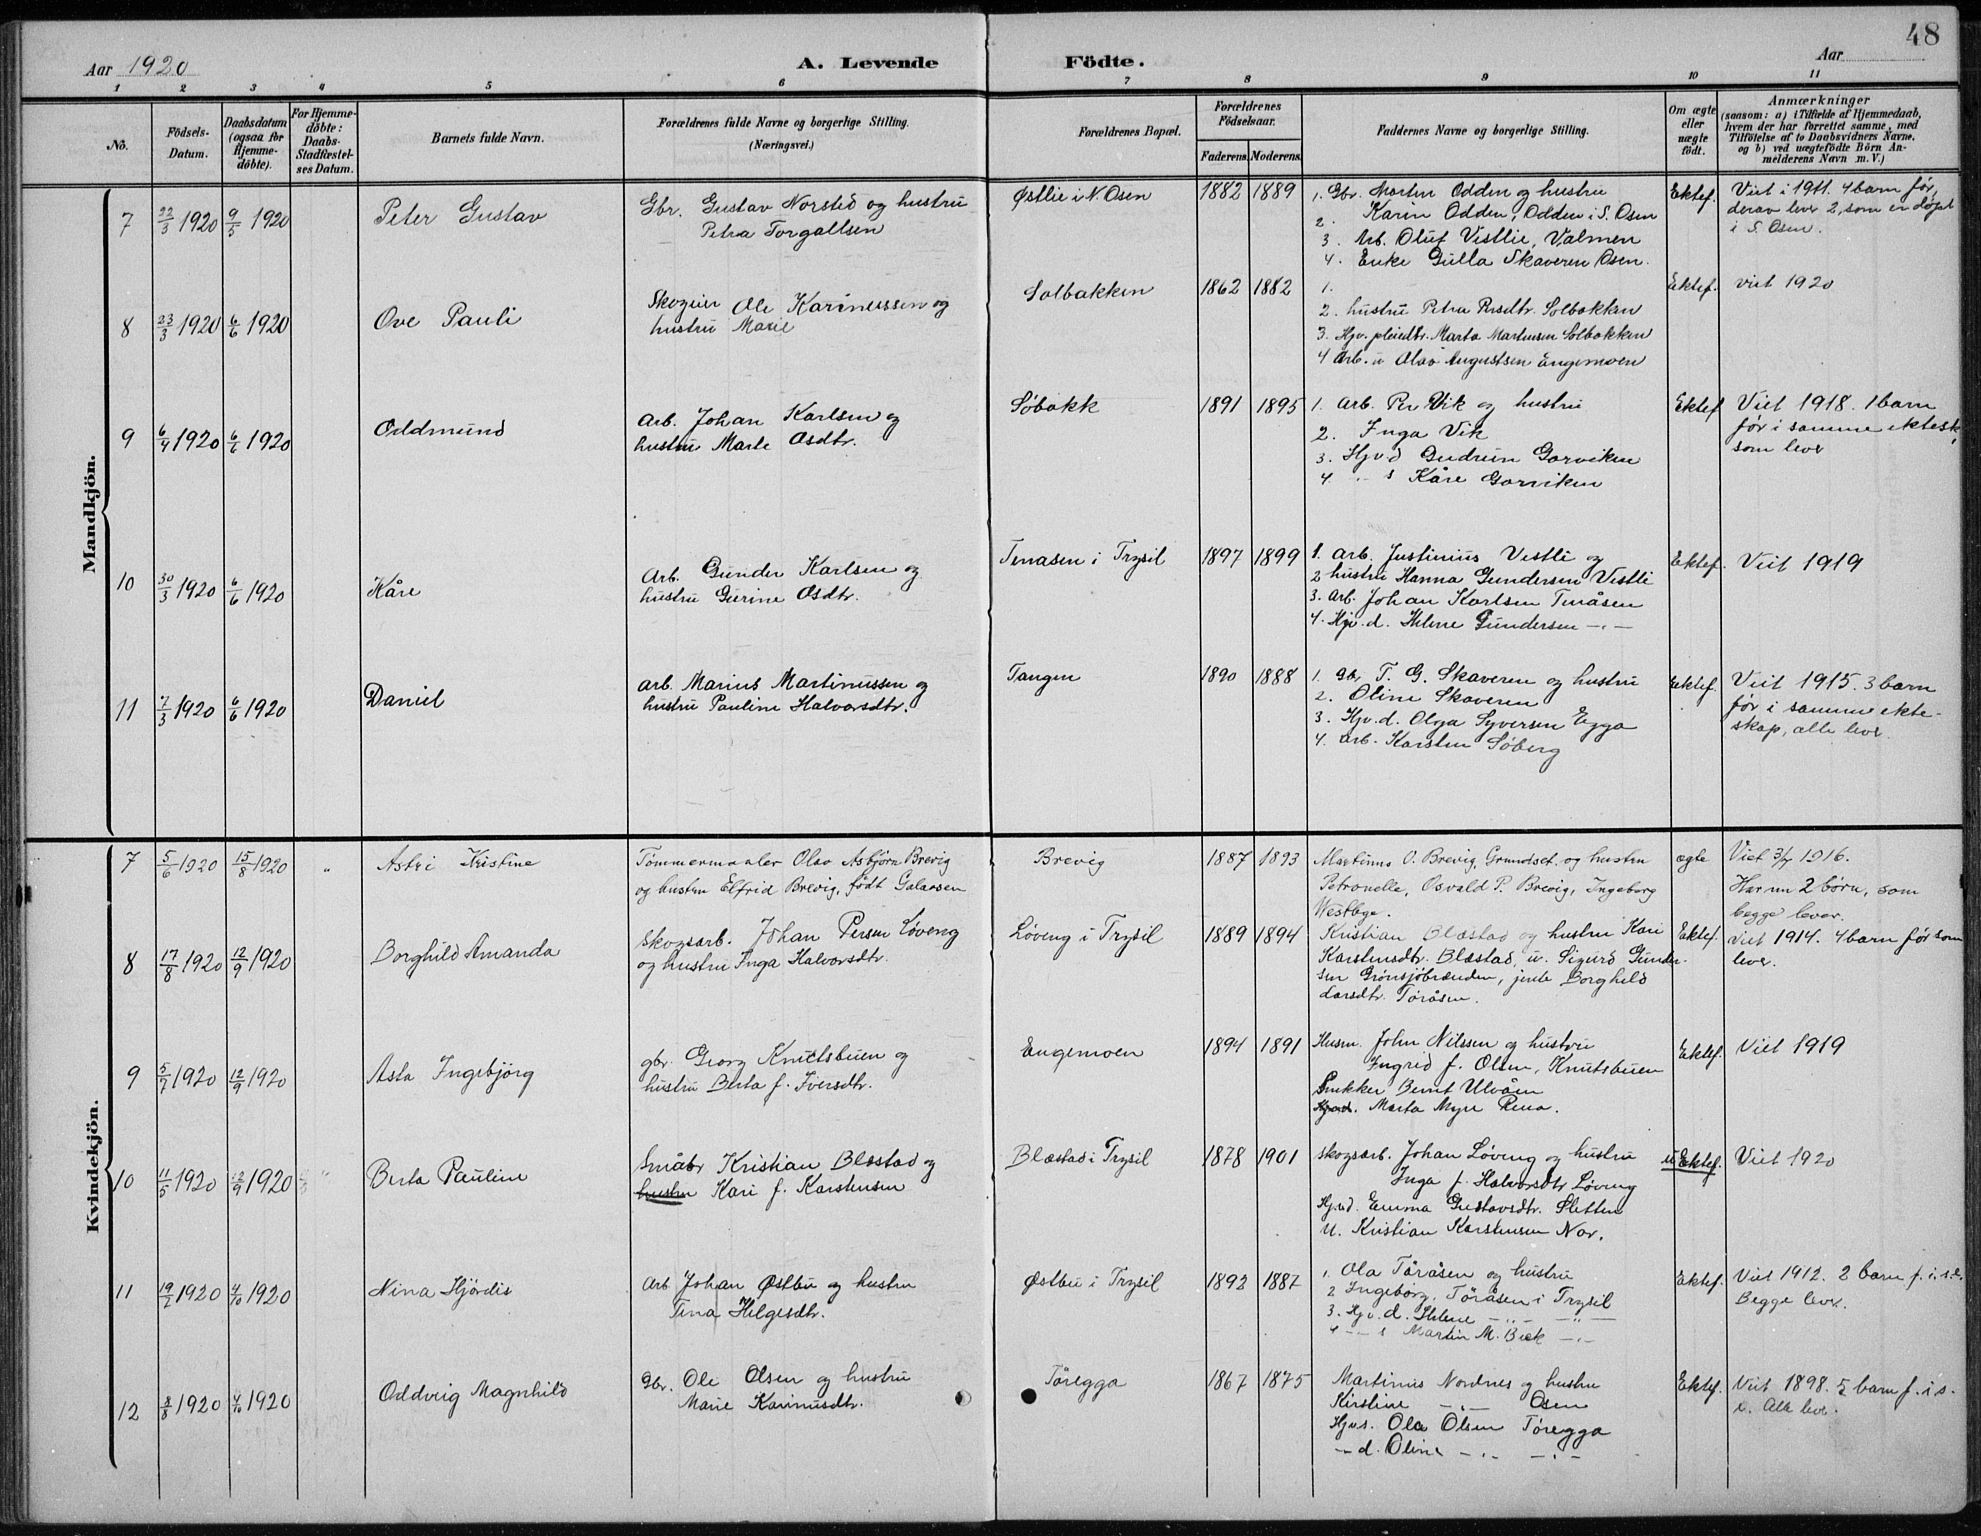 48
Aar 1920 A. Levende Födte. Aar
1 2 3 4 5 6 7 8 9 10 11
No.
Födsels-Datum.
Daabsdatum (ogsaa for Hjemme-döbte).
For Hjemme-döbte: Daabs-Stadfæstel-ses Datum.
Barnets fulde Navn.
Forældrenes fulde Navne og borgerlige Stilling.
(Næringsvei.)
Forældrenes Bopæl.
Forældrenes Födselsaar.
Faderens Moderens
Faddernes Navne og borgerlige Stilling.
Om ægte eller uægte födt.
Anmærkninger
(saasom: a) i Tilfælde af Hjemmedaab,
hvem der har forrettet samme, med
Tilföielse af to Daabsvidners Navne,
og b) ved uægtefödte Börn An-
melderens Navn m. V.)
Mandkjön.
7 22/3 1920 9/5 1920 Peter Gustav
Gbr. Gustav Norsted og hustru
Petra Torgallsen
Østlie i N. Osen 1882 1889
1. Gbr. Morten Odden og hustru
2. Karen Odden, Odden i S. Osen
3. Arb. Oluf Vestlie, Valmen
4. Enke Gulla Skaveren Osen.
Ektef.
Viet i 1911. 4 barn før,
derav lever 2, som er døpt
i S. Osen.
8 23/3 1920 6/6 1920 Ove Pauli
Skogeier Ole Karinussen og
hustru Marie
Solbakken 1862 1882
1.
2. hustru Petra Persdtr. Solbakken
3. Hjv. pleiedtr. Marta Martinsen Solbakken
4 Arb. u Olav Augustsen Ængemoen
Ektef. viet 1920
9 6/4 1920 6/6 1920 Oddmund
Arb. Johan Karlsen og
hustru Marte Osdtr.
Søbakk 1891 1895
1. Arb. Per Vik og hustru
2. Inga Vik
3. Hjv d Gudrun Gorviken
4 -"- s Kåre Gorviken
Ektef
Viet 1918. 1 barn
før i samme ektesk,
som lever
10 30/3 1920 6/6 1920 Kåre
Arb. Gunder Karlsen og
hustru Gurine Osdtr.
Tenåsen i Trysil 1897 1899
1. Arb. Justinius Vestli og
2 hustru Hanna Gundersen Vestli
3. Arb. Johan Karlsen Tenåsen
4. Hjv. d. Helene Gundersen -"-
Ektef. Viet 1919
11 7/3 1920 6/6 1920 Daniel
Arb. Marius Martinussen og
hustru Pauline Halvorsdtr.
Tangen 1890 1888
1. Gbr T. G. Skaveren og hustru
2. Oline Skaveren
3. Hjv. d. Olga Syversen Egga
4. Arb. Karsten Søberg
Ektef.
Viet 1915. 3 barn
før i samme ekte-
skap, alle lever
Kvindekjön.
7 5/6 1920 15/8 1920 " Astri Kristine
Tømmermaaler Olav Asbjørn Brevig
og hustru Elfrid Brevig, født Galaasen
Brevig 1887 1893
Martinus O. Brevig, Grundset, og hustru
Petronelle, Osvald P. Brevig, Ingeborg
Westbye.
ægte
Viet 3/7 1916.
Har nu 2 børn, som
begge lever.
8 17/8 1920 12/9 1920 Borghild Amanda
Skogsarb. Johan Persen Løveng
og hustru Inga Halvorsdtr.
Løveng i Trysil 1889 1894
Kristian Blæstad og hustru Kari
Karstensdtr. Blæstad, u. Sigurd Gunder-
sen Grønsjøbrænden, jente Borghild
Larsdtr. Töråsen.
Ektef.
viet 1914. 4 barn før som
lever.
9 5/7 1920 12/9 1920 Asta Ingebjörg
gbr. Georg Knutsbuen og
hustru Berta f. Iversdtr.
Engemoen 1894 1891
Husm. John Nilssen og hustru
Ingrid f. Olsen, Knutsbuen
Snekker Bernt Ulvåen
Hjvd. Marta Myre Rena.
Ektef. Viet 1919
10 11/5 1920 12/9 1920 Berta Pauline
Småbr Kristian Blæstad og
hustru Kari f. Karstensen
Blæstad i Trysil 1878 1901
Skogsarb. Johan Løveng og hustru
Inga f. Halvorsdtr Løveng
Hjvd. Emma Gustavsdtr. Sletten
U. Kristian Karstensen Nor.
u Ektef. Viet 1920
11 19/7 1920 4/10 1920 Nina Hjördis
Arb Johan Østbu og hustru
Tina Helgesdtr.
Østbu i Trysil 1892 1887
1. Ola Töråsen og hustru
2 Ingeborg, Töråsen i Trysil
3. Hjv. d. Helene -"- -"-
4 -"- s Martin M. Bæk -"-
Ektef.
Viet 1912. 2 barn f. i. s. e.
Begge lever.
12 8/8 1920 4/10 1920 Oddveig Magnhild
Gbr. Ole Olsen og hustru
Marie Karinusdtr.
Töregga 1867 1875
Martinus Nordnes og hustru
Kirstine -"- Osen
Hjvs. Ola Olsen Töregga
-"- d. Oline -"- -"-
Ektef.
Viet 1898. 5 barn f. i s.
e. Alle lever.